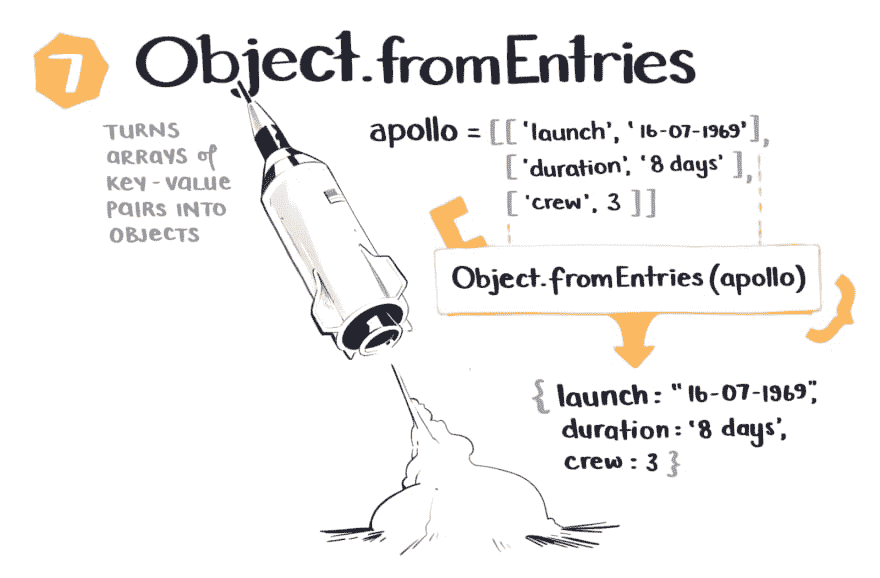 7
Object.fromEntries
TURNS
ARRAYS of
KEY-VALUE
PAIRS INTO
OBJECTS
apollo = [[ 'launch', '16-07-1969'],
[ 'duration', '8 days' ],
[ 'crew', 3 ]]
Object.fromEntries (apollo)
{ launch: "16-07-1969",
duration: '8 days',
crew : 3 }